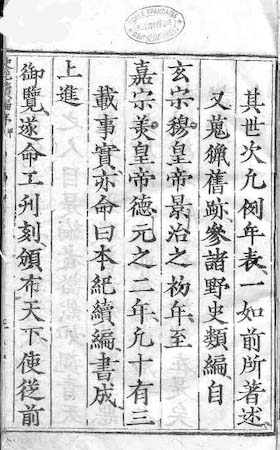 ECOLE FRANÇAISE
其世次凢例年表一如前所著述
又蒐獵舊跡參諸野史類編自
玄宗穆皇帝景治之初年至
嘉宗羙皇帝德元之二年凢十有三
載事實亦命曰本紀續編書成
上進
御覽遂命工刋刻頒布天下使從前